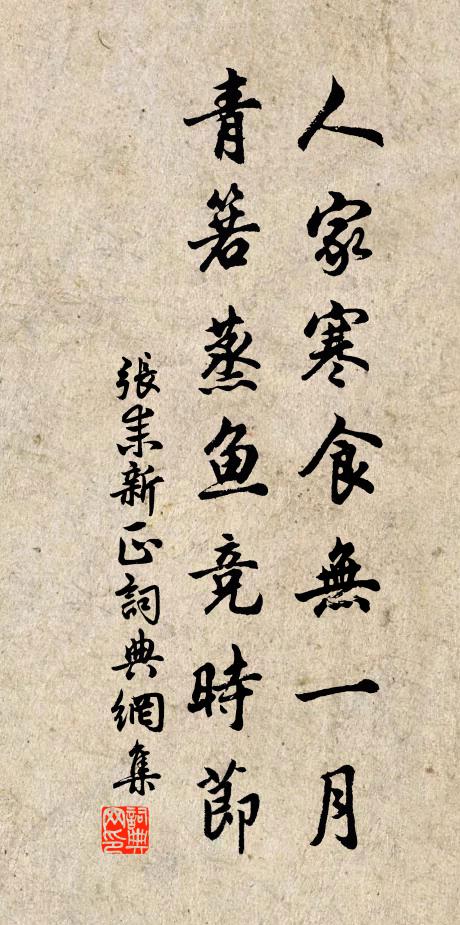 人家寒食無一月
青箬蒸鱼竞時節
張耒新正詞典網集
詞典網印